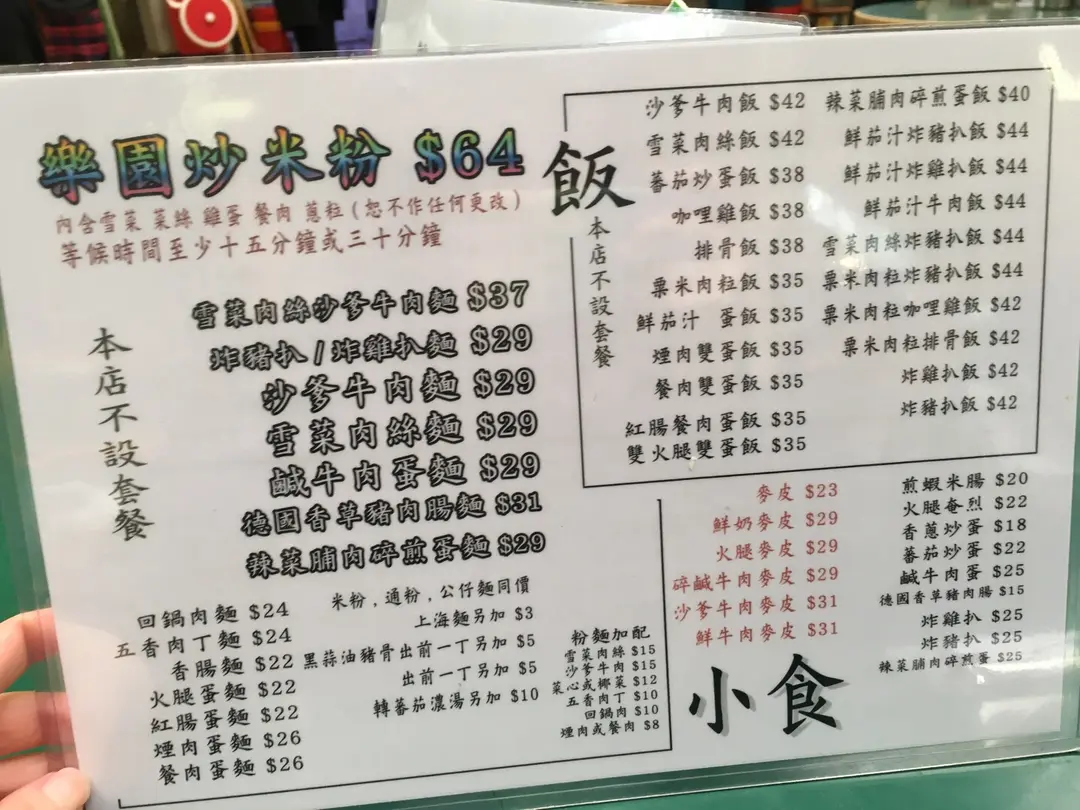 樂園炒米粉 $64
內含雪菜 菜絲 雞蛋 餐肉 蔥粒(恕不作任何更改)
等候時間至少十五分鐘或三十分鐘
本店不設套餐
雪菜肉絲沙爹牛肉麵 $37
炸豬扒/炸雞扒麵 $29
沙爹牛肉麵 $29
雪菜肉絲麵 $29
鹹牛肉蛋麵 $29
德國香草豬肉腸麵 $31
辣菜脯肉碎煎蛋麵 $29
回鍋肉麵 $24
五香肉丁麵 $24
香腸麵 $22
火腿蛋麵 $22
紅腸蛋麵 $22
煙肉蛋麵 $26
餐肉蛋麵 $26
米粉,通粉,公仔麵同價
上海麵另加 $3
黑蒜油豬骨出前一丁另加 $5
出前一丁另加 $5
轉蕃茄濃湯另加 $10
粉麵加配
雪菜肉絲 $15
沙爹牛肉 $15
菜心或椰菜 $12
五香肉丁 $10
回鍋肉 $10
煙肉或餐肉 $8
飯
本店不設套餐
沙爹牛肉飯 $42
雪菜肉絲飯 $42
蕃茄炒蛋飯 $38
咖哩雞飯 $38
排骨飯 $38
粟米肉粒飯 $35
鮮茄汁 蛋飯 $35
煙肉雙蛋飯 $35
餐肉雙蛋飯 $35
紅腸餐肉蛋飯 $35
雙火腿雙蛋飯 $35
辣菜脯肉碎煎蛋飯 $40
鮮茄汁炸豬扒飯 $44
鮮茄汁炸雞扒飯 $44
鮮茄汁牛肉飯 $44
雪菜肉絲炸豬扒飯 $44
粟米肉粒炸豬扒飯 $44
粟米肉粒咖哩雞飯 $42
粟米肉粒排骨飯 $42
炸雞扒飯 $42
炸豬扒飯 $42
麥皮 $23
鮮奶麥皮 $29
火腿麥皮 $29
碎鹹牛肉麥皮 $29
沙爹牛肉麥皮 $31
鮮牛肉麥皮 $31
小食
煎蝦米腸 $20
火腿奄烈 $22
香蔥炒蛋 $18
蕃茄炒蛋 $22
鹹牛肉蛋 $25
德國香草豬肉腸 $15
炸雞扒 $25
炸豬扒 $25
辣菜脯肉碎煎蛋 $25